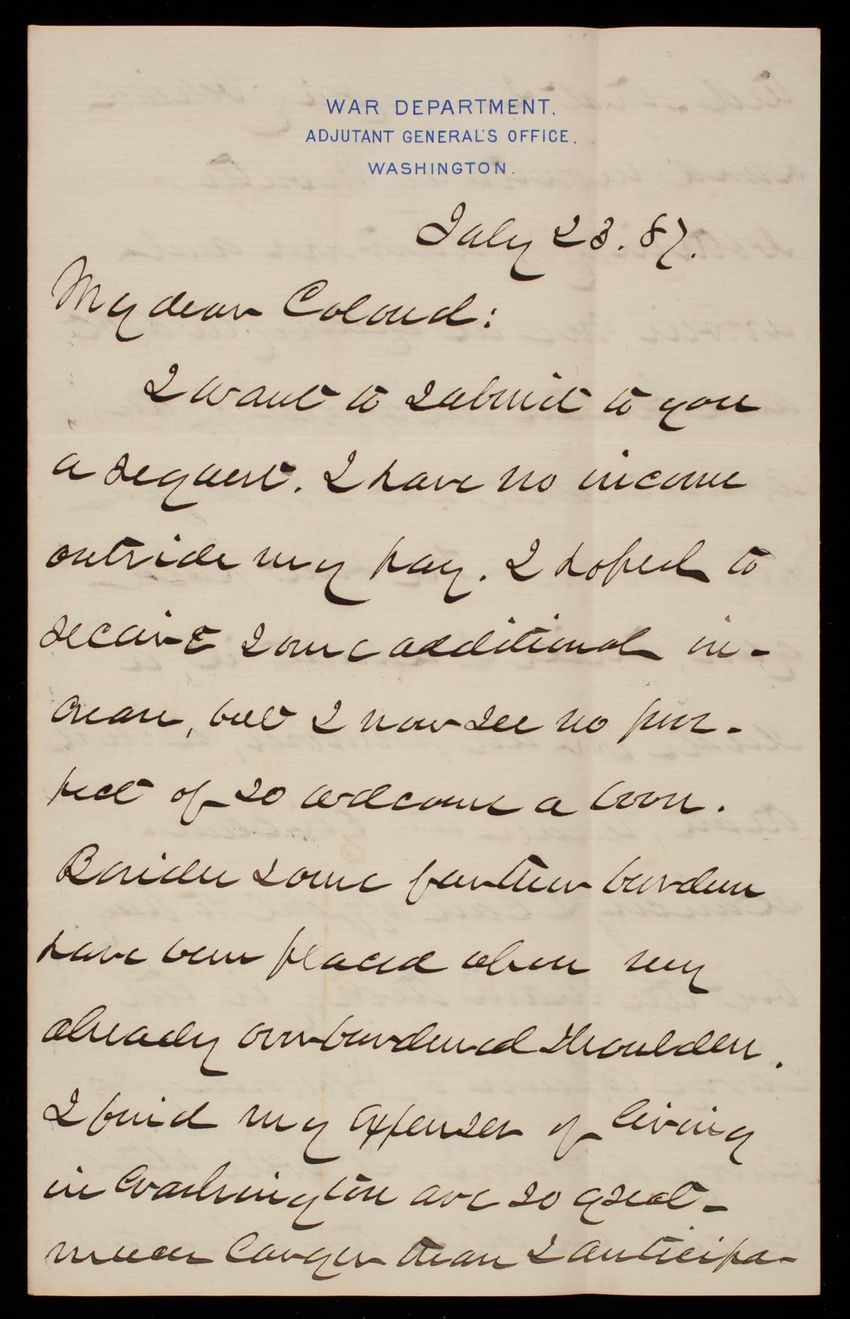 WAR DEPARTMENT,
ADJUTANT GENERAL'S OFFICE,
WASHINGTON.
July 23. 87.
My dear Colonel:
I want to submit to you
a request. I have no income
outside my pay. I hoped to
receive some additional in-
crease, but I now see no pros-
pect of so welcome a boon.
Besides some further burdens
have been placed upon my
already overburdened shoulders.
I find my expenses of living
in Washington are so great -
much larger than I anticipa-